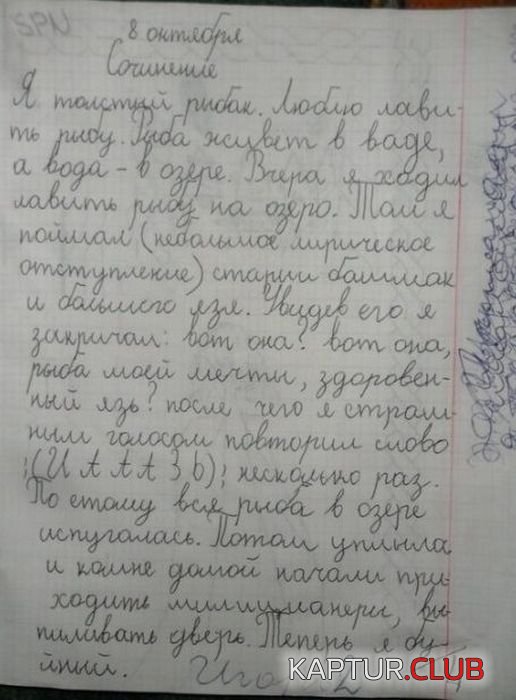 SPN
8 октября
Сочинение
Я толстый рыбак. Люблю лави-
ть рыбу. Рыба живет в ваде,
а вода - в озере. Вчера я ходил
лавить рыбу на озеро. Там я
поймал (небольшое лирическое
отступление) старии башмак
и большого язя. Увидев его я
закричал: вот она? вот она,
рыба моей мечты, здоровен-
ный язь? после чего я страш-
ным голосом повторил слово
;(И А А А З Ь); несколько раз.
По етому вся рыба в озере
испугалась. Потом уплыла
и комне домой начали при-
ходить милицианеры, вы-
пиливать дверь. Теперь я бу-
йный.
KAPTUR.CLUB